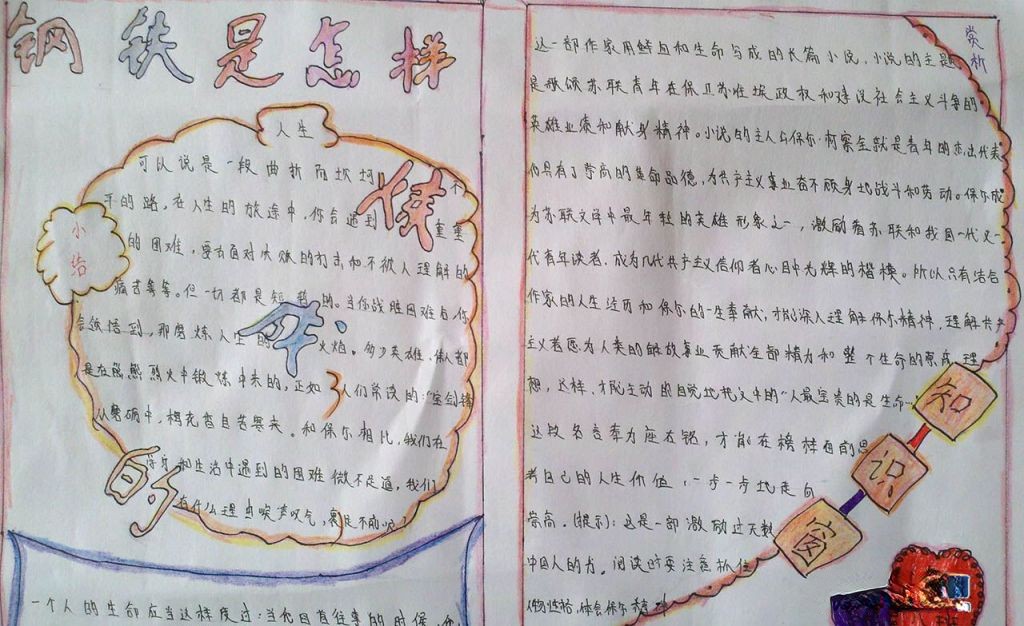 钢铁是怎样
炼
成
的
小结
人生
可以说是一段曲折而坎坷不
平的路，在人生的旅途中，你会遇到重重
的困难，要有面对失败的打击和不被人理解的
痛苦等等。但一切都是短暂的。当你战胜困难后，你
会领悟到，那磨炼人生的火焰。多少英雄，伟人都
是在熊熊烈火中锻炼中来的，正如人们常谈的："宝剑锋
从磨砺中，梅花香自苦寒来。和保尔相比，我们在
学习和生活中遇到的困难微不足道，我们
有什么理由唉声叹气，裹足不前呢？
一个人的生命应当这样度过：当他回首往事的时候，他
赏析
这一部作家用鲜血和生命写成的长篇小说，小说的主题
是歌颂苏联青年在保卫苏维埃政权和建设社会主义斗争的
英雄业绩和献身精神。小说的主人公保尔·柯察金就是青年的杰出代表
他具有了崇高的革命品德，为共产主义事业奋不顾身地战斗和劳动。保尔成
为苏联文学中最年轻的英雄形象之一，激励着苏联和我国一代又一
代青年读者，成为几代共产主义信仰者心目中光辉的楷模。所以只有结合
作家的人生经历和保尔的一生奉献，才能深入理解保尔精神，理解共产
主义者愿为人类的解放事业贡献全部精力和整个生命的崇高理
想，这样，才能主动的自觉地把文中的"人最宝贵的是生命…"
这段名言奉为座右铭，才能在榜样面前思
考自己的人生价值，一步一步地走向
崇高。（提示）：这是一部激励过无数
中国人的书。阅读时要注意抓住
人物性格，体会保尔精神
知识窗